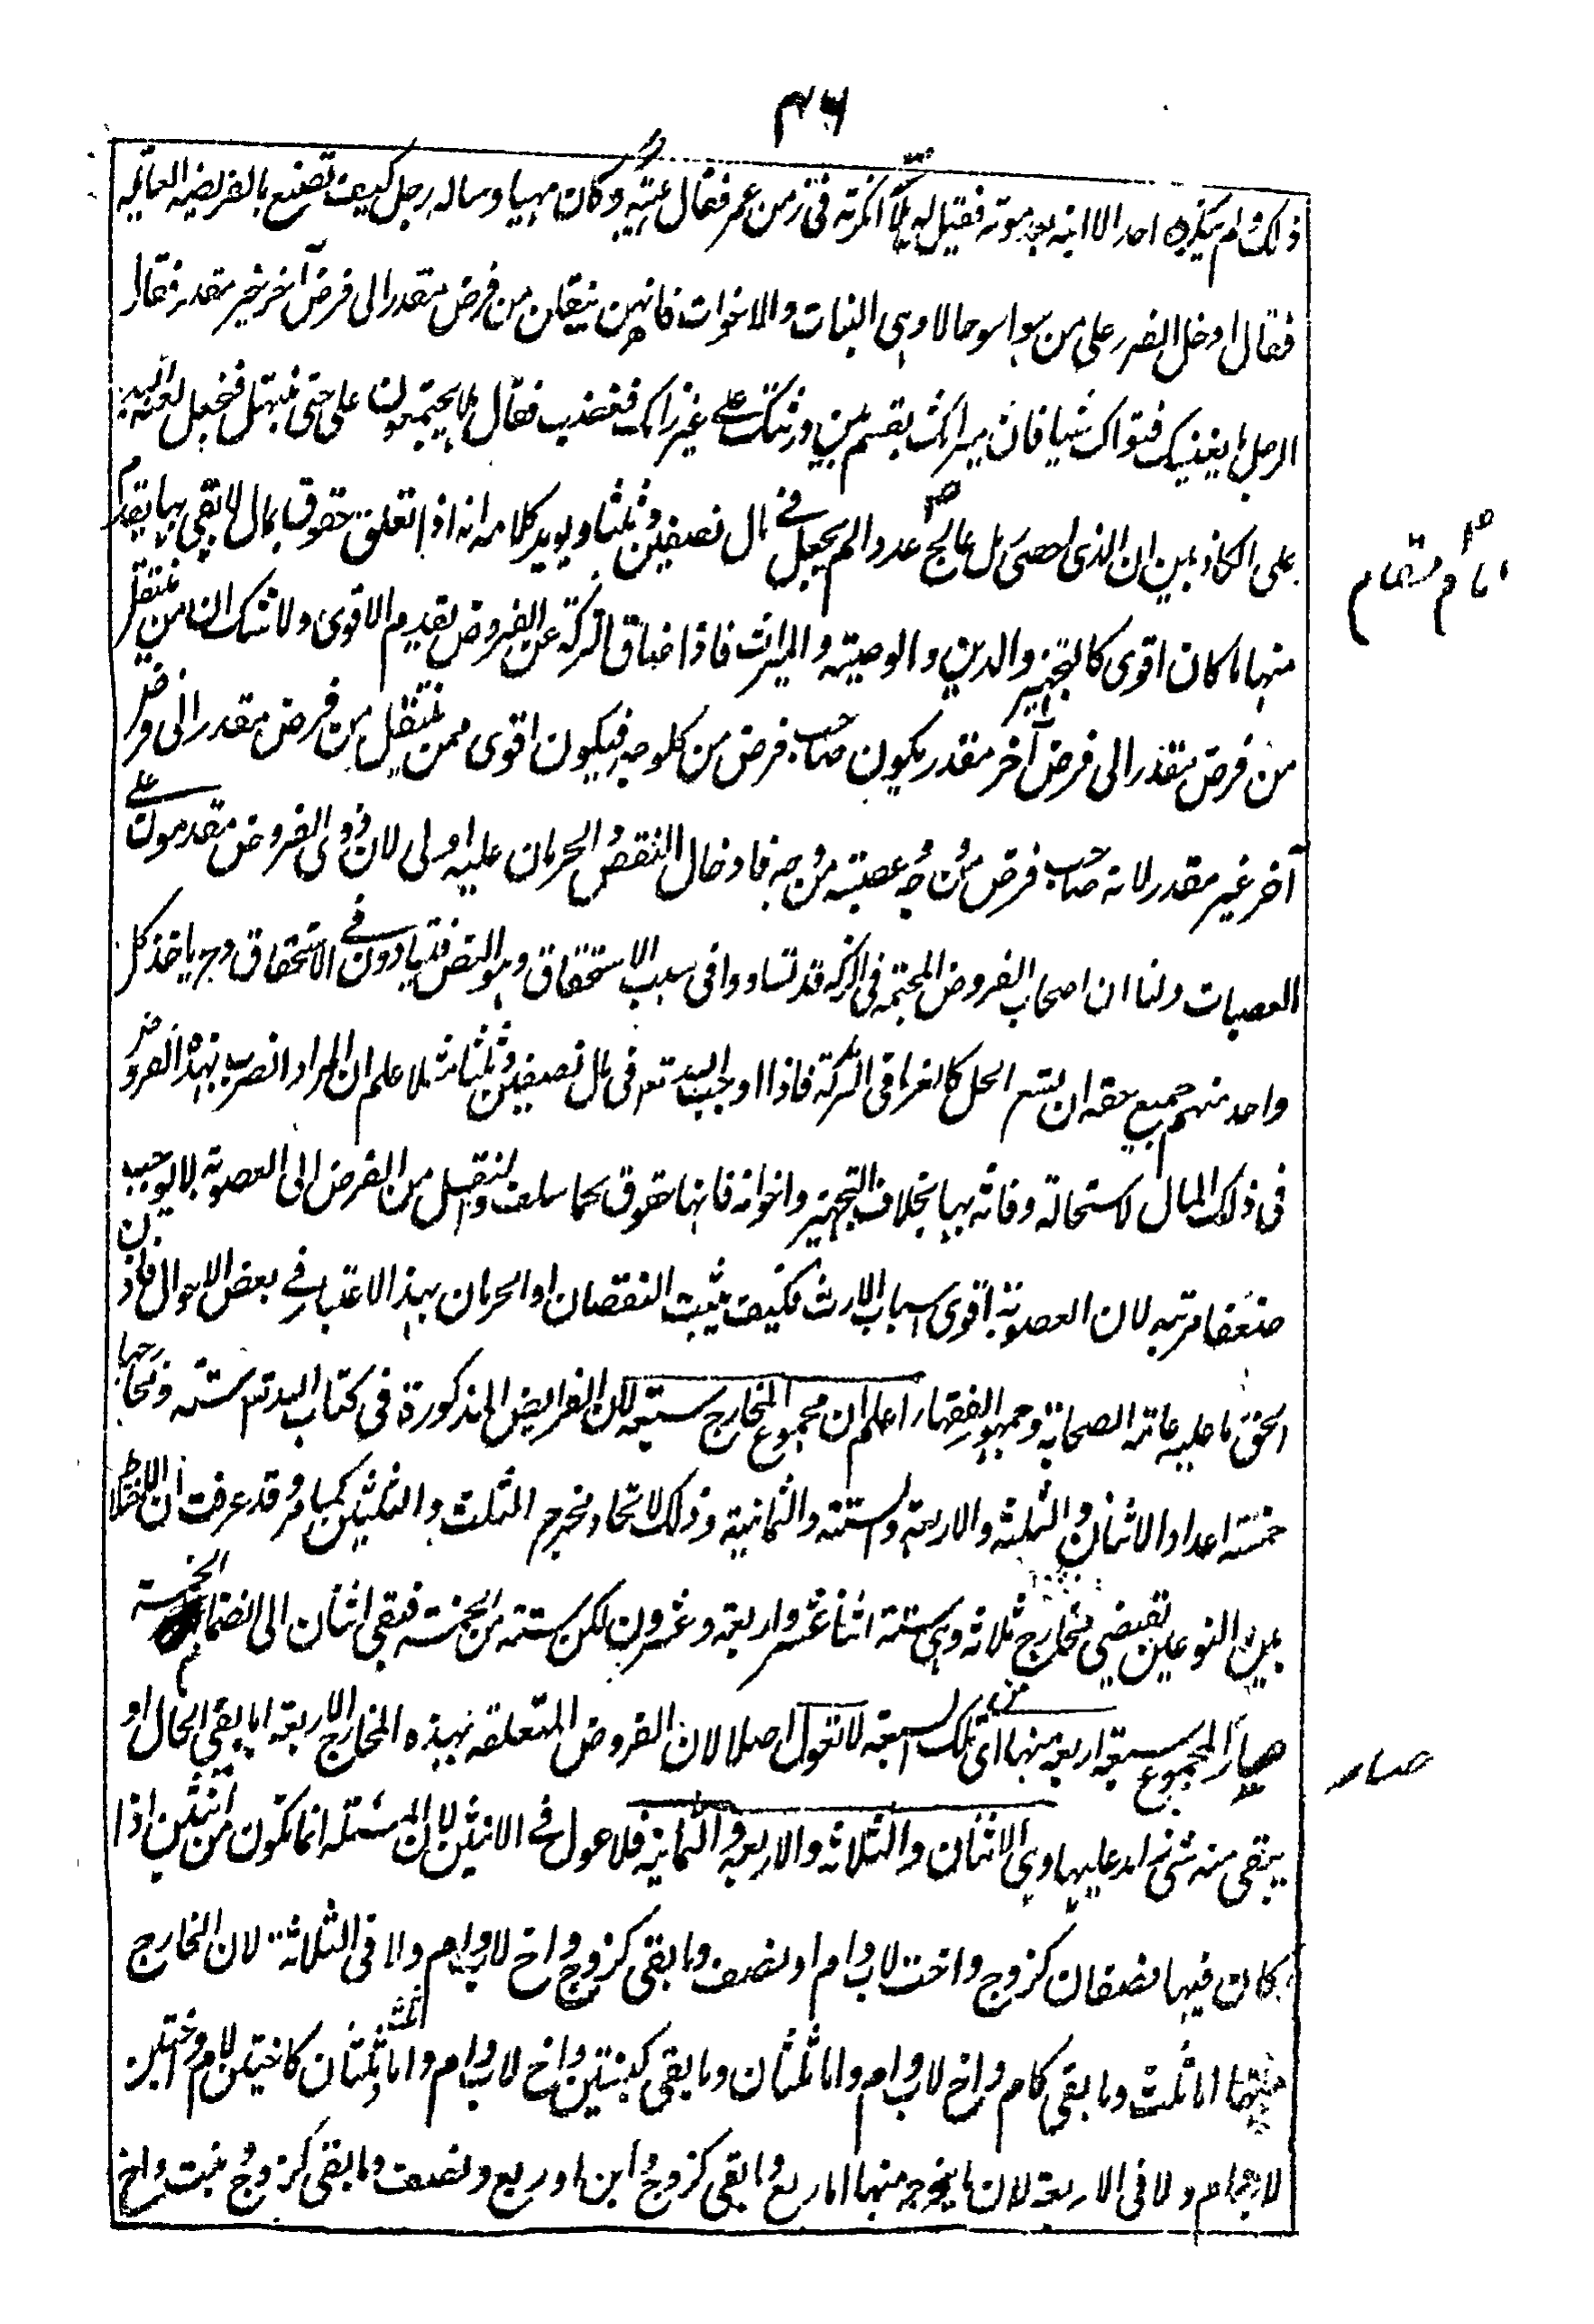 ۴۶
ذلك ولم ينكره احد الا ابنه بعد موته فقيل له هلا انكرته في زمن عمر فقال هبته وكان مهيبا وساله رجل كيف تصنع بالفريضة العائلة
فقال ادخل الضرر على من هو اسوء حالا وهي البنات والاخوات فانهن ينقلن من فرض مقدر الى فرض آخر غير مقدر فقال
الرجل ما يغنيك فتواك شيئا فان ميراثك يقسم بين ورثتك على غير رايك فغضب فقال هلا يجتمعون على حتى نبتهل فنجعل لعنة الله
على الكاذبين ان الذي احصى رمل عالج عددا لم يجعل في مال نصفين وثلثا ويويد كلامه انه اذا تعلق حقوق بمال لا يفي بها يقدم
منها ما كان اقوى كالتجهيز والدين والوصية والميراث فاذا ضاق التركة عن الفروض يقدم الاقوى ولا شك ان من ينتقل
من فرض مقدر الى فرض آخر مقدر يكون صاحب فرض من كل وجه فيكون اقوى ممن ينتقل من فرض مقدر الى فرض
آخر غير مقدر لانه صاحب فرض من وجه عصبته من وجه فادخال النقص والحرمان عليه اولى لان ذوى الفروض مقدمون على
العصبات ولنا ان اصحاب الفروض المجتمعة في التركة قد تساووا في سبب الاستحقاق وهو النص فتساوون في الاستحقاق وح ياخذ كل
واحد منهم جميع حقه ان اتسع المحل كالغرما في التركة فاذا اوجب الله تعه في مال نصفين وثلثا مثلا علم ان المراد الضرب بهذه الفروض
في ذلك المال لاستحالة وفائه بها بخلاف التجهيز واخواته فانها حقوق كما سلف والنقل من الفرض الى العصوبة لا يوجب
ضعفا مرتبه لان العصوبة اقوى اسباب الارث فكيف يثبت النقصان او الحرمان بهذا الاعتبار في بعض الاحوال فاذن
الحق ما عليه عامة الصحابة وجمهور الفقهاء اعلم ان مجموع المخارج سبعة لان الفرايض المذكورة في كتاب الله تعه ستة ومخارجها
خمسة اعداد الاثنان والثلثة والاربعة والستة والثمانية وذلك لاتحاد مخرج الثلث والثلثين كما مر وقد عرفت ان الاختلاط
بين النوعين تقتضي مخارج ثلاثة وهي ستة اثنا عشر واربعة وعشرون لكن ستة من الخمسة فبقي اثنان الى انضما الخمسة
صار المجموع سبعة اربعة منها اى من تلك السبعة لا تعول اصلا لان الفروض المتعلقة بهذه المخارج الاربعة اما يفى المال او
يبقى منه شى زايد عليها وهي الاثنان والثلاثة والاربعة والثمانية فلا عول في الاثنين لان المسئلة انما تكون من اثنين اذا
كان فيها نصفان كزوج واخت لاب وام او نصف وما بقى كزوج واخ لاب وام ولا في الثلاثة لان الخارج
منها اما ثلث وما بقى كام واخ لاب وام واما ثلثان وما بقى كبنتين واخ لاب وام واما ثلث وثلثان كاختين لام واختين
لاب وام ولا في الاربعة لان ما يخرج منها اما ربع وما بقى كزوج وابن او ربع ونصف وما بقى كزوج وبنت واخ
صار